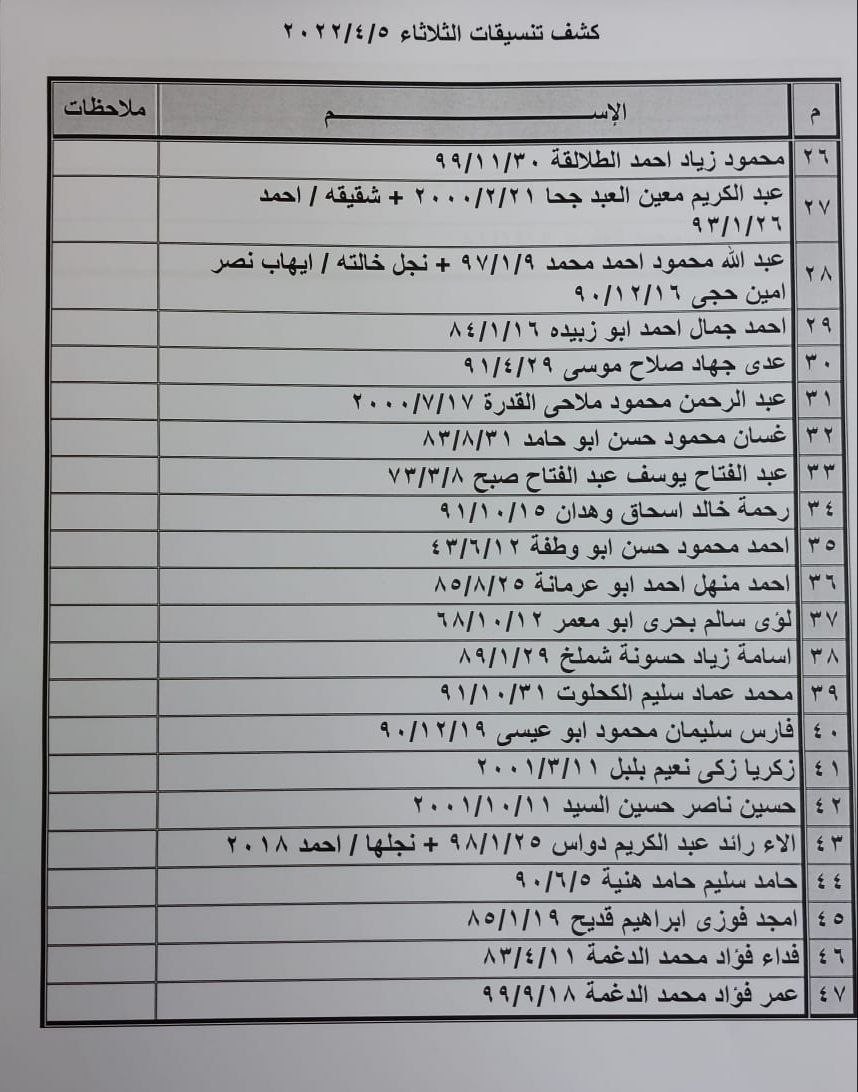 كشف تنسيقات الثلاثاء ٢٠٢٢/٤/٥
م الإســـــــــــــــــــــــــم ملاحظات
٢٦ محمود زياد احمد الطلالقة ٩٩/١١/٣٠
٢٧ عبد الكريم معين العبد جحا ٢٠٠٠/٢/٢١ + شقيقه / احمد
٩٣/١/٢٦
٢٨ عبد الله محمود احمد محمد ٩٧/١/٩ + نجل خالته / ايهاب نصر
امين حجى ٩٠/١٢/١٦
٢٩ احمد جمال احمد ابو زبيده ٨٤/١/١٦
٣٠ عدى جهاد صلاح موسى ٩١/٤/٢٩
٣١ عبد الرحمن محمود ملاحى القدرة ٢٠٠٠/٧/١٧
٣٢ غسان محمود حسن ابو حامد ٨٣/٨/٣١
٣٣ عبد الفتاح يوسف عبد الفتاح صبح ٧٣/٣/٨
٣٤ رحمة خالد اسحاق وهدان ٩١/١٠/١٥
٣٥ احمد محمود حسن ابو وطفة ٤٣/٦/١٢
٣٦ احمد منهل احمد ابو عرمانة ٨٥/٨/٢٥
٣٧ لؤى سالم بحرى ابو معمر ٦٨/١٠/١٢
٣٨ اسامة زياد حسونة شملخ ٨٩/١/٢٩
٣٩ محمد عماد سليم الكحلوت ٩١/١٠/٣١
٤٠ فارس سليمان محمود ابو عيسى ٩٠/١٢/١٩
٤١ زكريا زكى نعيم بلبل ٢٠٠١/٣/١١
٤٢ حسين ناصر حسين السيد ٢٠٠١/١٠/١١
٤٣ الاء رائد عبد الكريم دواس ٩٨/١/٢٥ + نجلها / احمد ٢٠١٨
٤٤ حامد سليم حامد هنية ٩٠/٦/٥
٤٥ امجد فوزى ابراهيم قديح ٨٥/١/١٩
٤٦ فداء فؤاد محمد الدغمة ٨٣/٤/١١
٤٧ عمر فؤاد محمد الدغمة ٩٩/٩/١٨